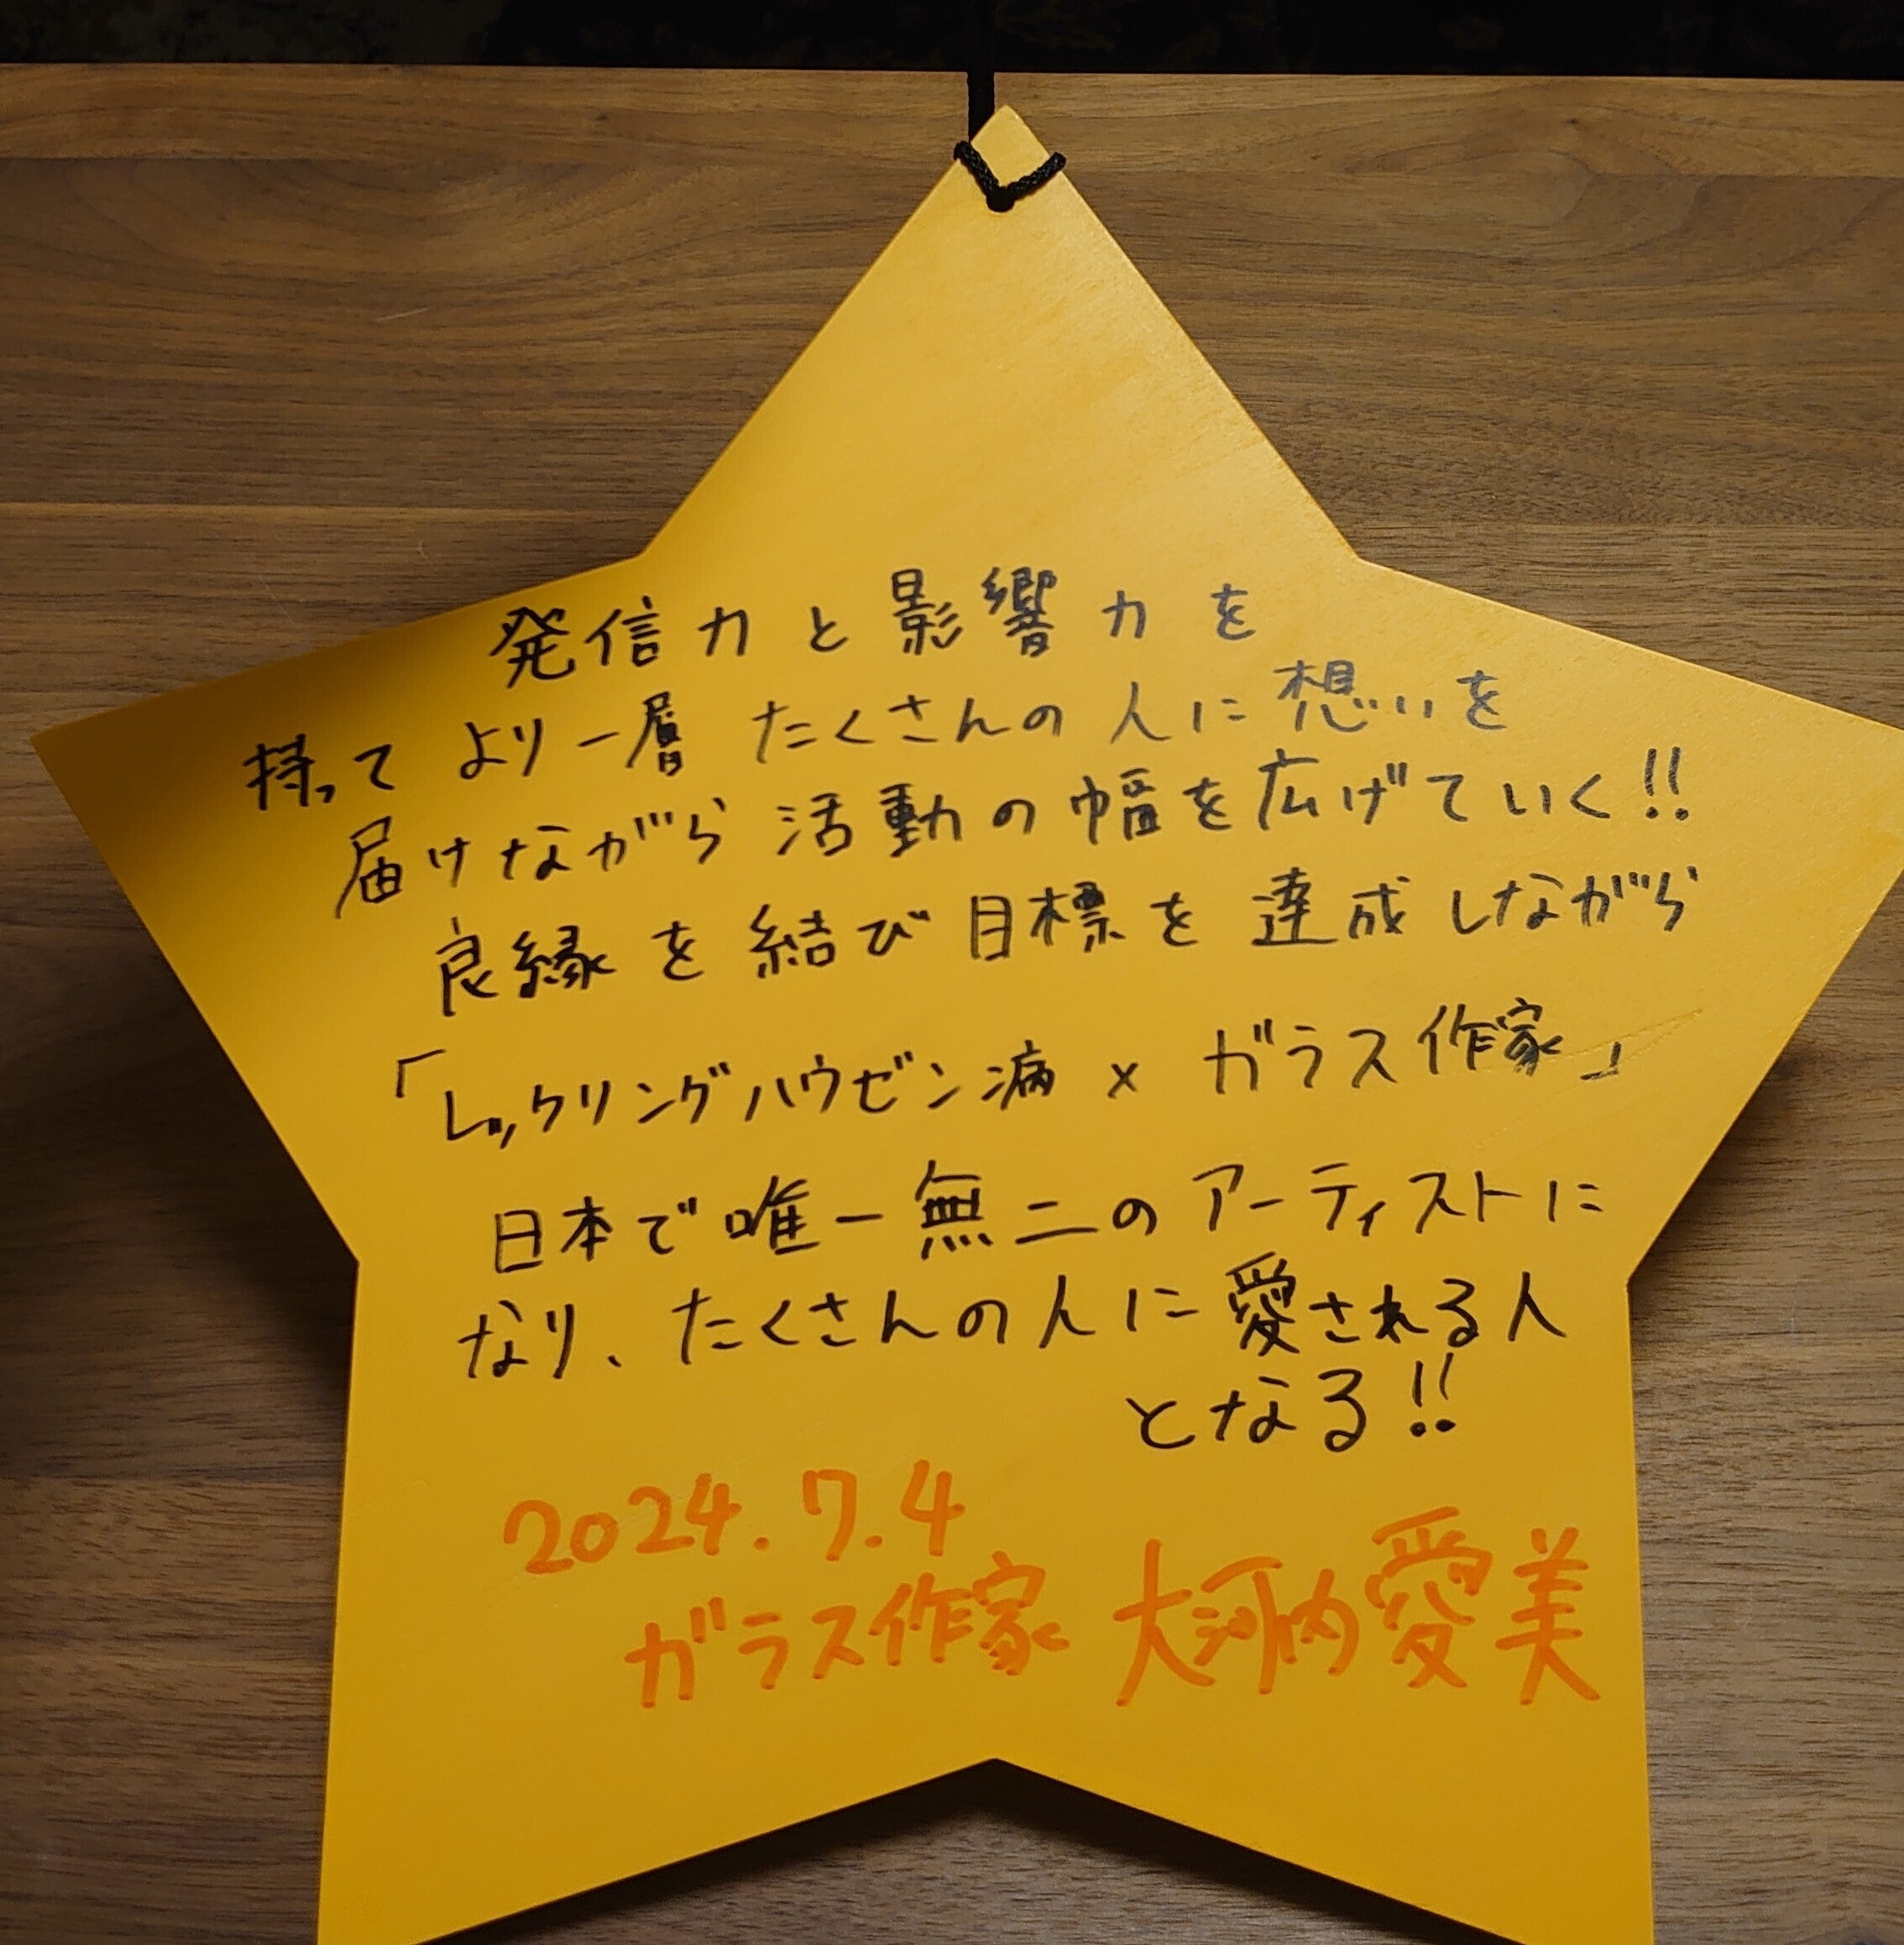 発信力と影響力を
持ってより一層たくさんの人に想いを
届けながら活動の幅を広げていく!!
良縁を結び目標を達成しながら
「レックリングハウゼン病×ガラス作家」
日本で唯一無二のアーティストに
なり、たくさんの人に愛される人
となる!!
2024.7.4
ガラス作家 大河内愛美